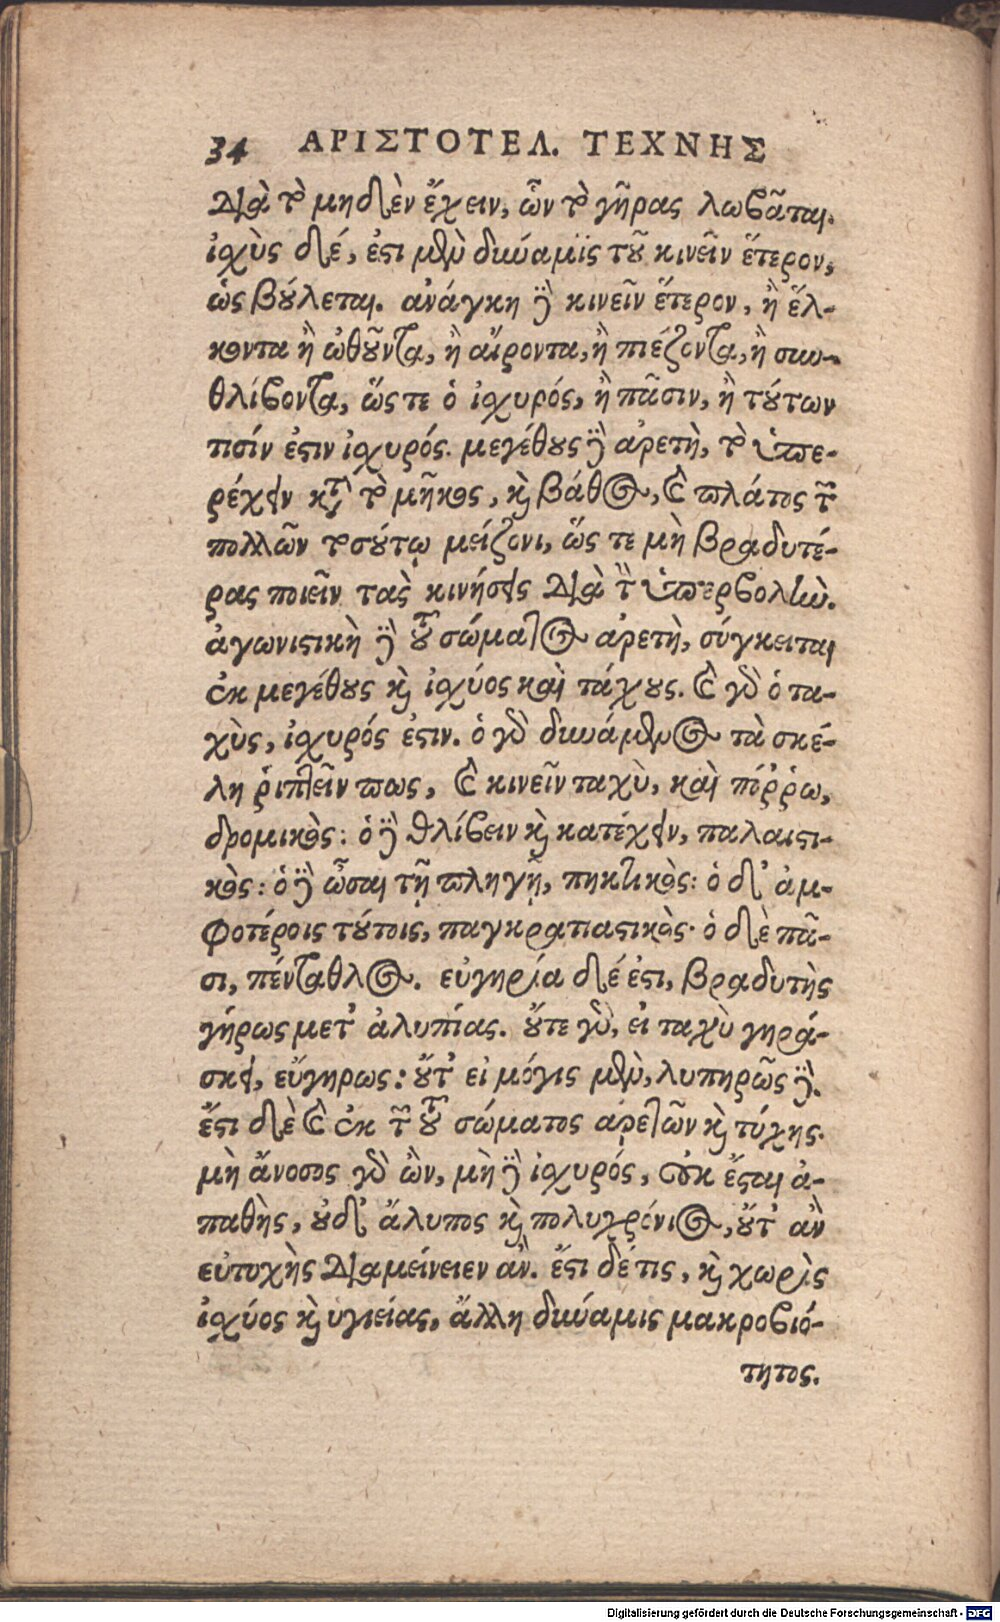 34 ΑΡΙΣΤΟΤΕΛ. ΤΕΧΝΗΣ
διὰ τὸ μηδὲν ἔχειν, ὧν τὸ γῆρας λωβᾶται.
ἰσχὺς δέ, ἐστι μὲν δύναμϊς τοῦ κινεῖν ἕτερον,
ὡς βούλεται. ἀνάγκη δὲ κινεῖν ἕτερον, ἢ ἕλ-
κοντα ἢ ὠθοῦντα, ἢ αἴροντα, ἢ πιέζοντα, ἢ συν-
θλίβοντα, ὥς τε ὁ ἰσχυρός, ἢ πᾶσιν, ἢ τούτων
τισίν ἐστιν ἰσχυρός. μεγέθους δὲ ἀρετὴ, τὸ ὑπε-
ρέχειν κατὰ τὸ μῆκος, καὶ βάθος, καὶ πλάτος τῶν
πολλῶν τοσούτῳ μείζονι, ὥς τε μὴ βραδυτέ-
ρας ποιεῖν τὰς κινήσεις διὰ τὴν ὑπερβολήν.
ἀγωνιστικὴ δὲ τοῦ σώματος ἀρετὴ, σύγκειται
ἐκ μεγέθους καὶ ἰσχύος καὶ τάχους. καὶ γὰρ ὁ τα-
χὺς, ἰσχυρός ἐστιν. ὁ γὰρ δυνάμενος τὰ σκέ-
λη ῥιπτεῖν πως, καὶ κινεῖν ταχὺ, καὶ πόῤῥω,
δρομικὸς: ὁ δὲ θλίβειν καὶ κατέχειν, παλαιστι-
κὸς: ὁ δὲ ὦσαι τῇ πληγῇ, πηκτικὸς: ὁ δ' ἀμ-
φοτέροις τούτοις, παγκρατιαστικὸς· ὁ δὲ πᾶ-
σι, πένταθλος. εὐγηρία δέ ἐστι, βραδυτὴς
γήρως μετ' ἀλυπίας. οὔτε γὰρ, εἰ ταχὺ γηρά-
σκει, εὔγηρως: οὔτ' εἰ μόγις μὲν, λυπηρῶς δέ.
ἔστι δὲ καὶ ἐκ τῶν τοῦ σώματος ἀρετῶν καὶ τύχης.
μὴ ἄνοσος γὰρ ὢν, μὴ δὲ ἰσχυρός, οὐκ ἔσται ἀ-
παθὴς, οὐδ' ἄλυπος καὶ πολυχρόνιος, οὔτ' ἂν
εὐτυχὴς διαμείνειεν ἄν. ἔστι δέ τις, καὶ χωρὶς
ἰσχύος καὶ ὑγιείας, ἄλλη δύναμις μακροβιό-
τητος.
Digitalisierung gefördert durch die Deutsche Forschungsgemeinschaft - DFG